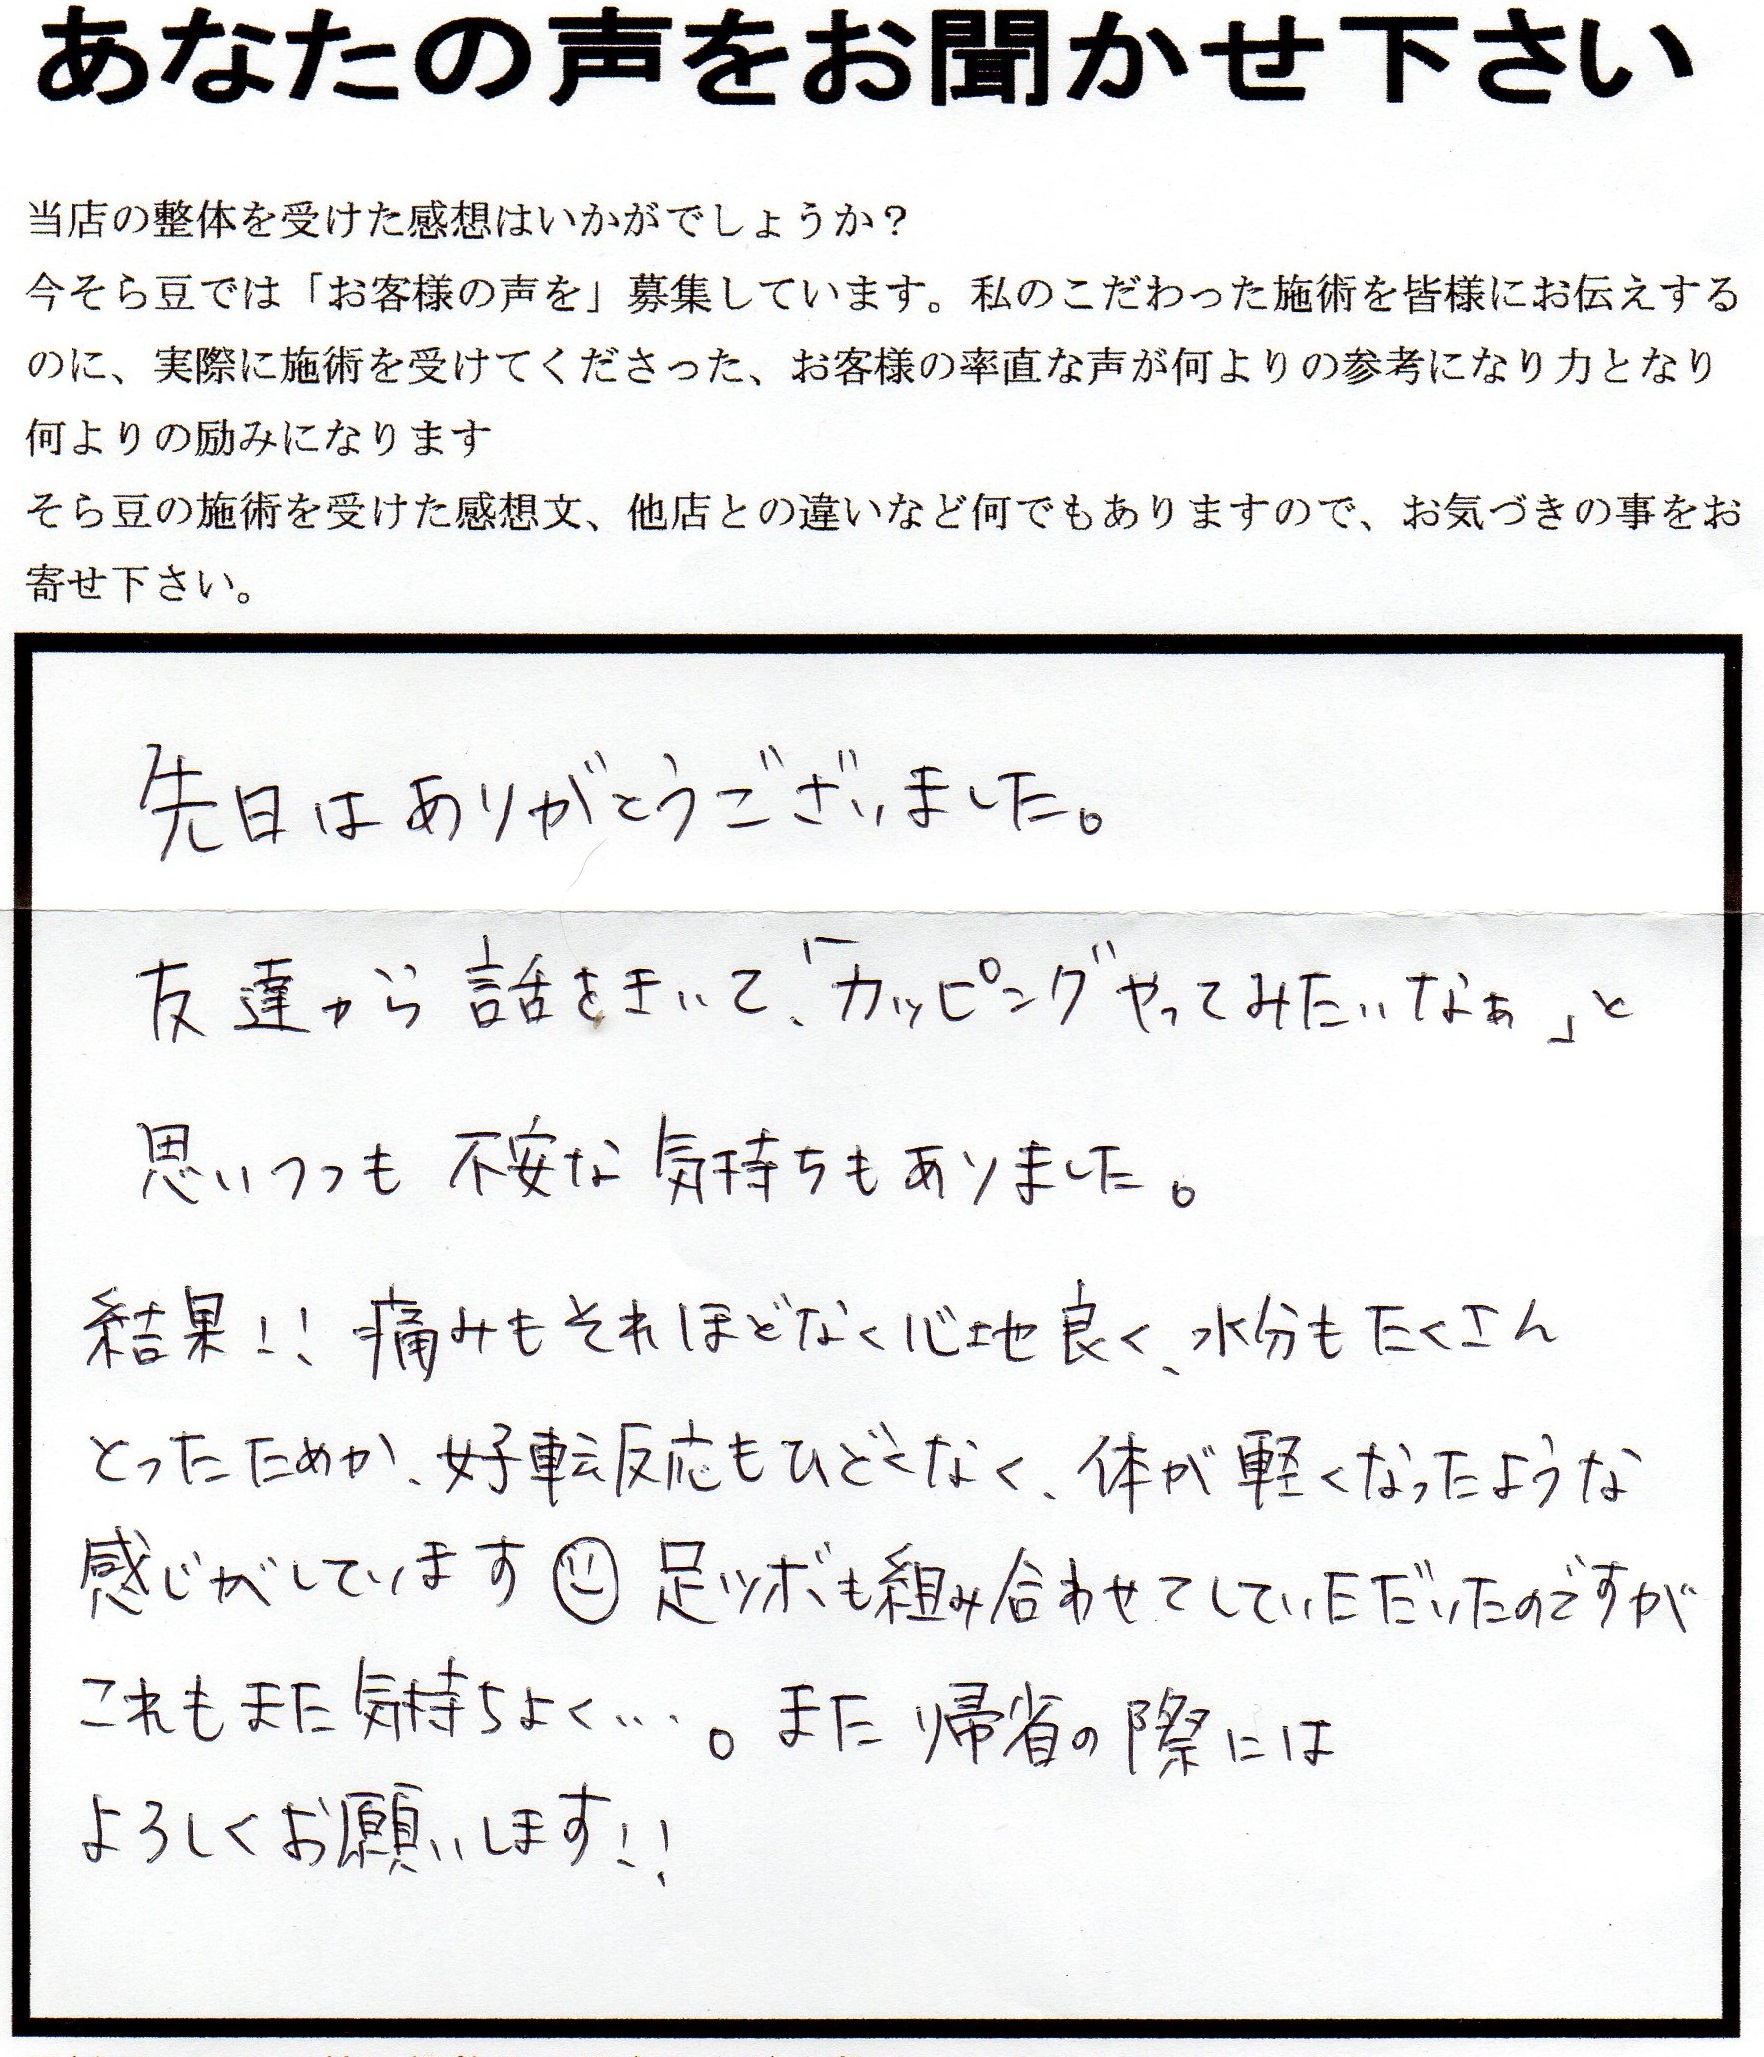 あなたの声をお聞かせ下さい
当店の整体を受けた感想はいかがでしょうか？
今そら豆では「お客様の声を」募集しています。私のこだわった施術を皆様にお伝えする
のに、実際に施術を受けてくださった、お客様の率直な声が何よりの参考になり力となり
何よりの励みになります
そら豆の施術を受けた感想文、他店との違いなど何でもありますので、お気づきの事をお
寄せ下さい。
先日はありがとうございました。
友達から話をきいて、「カッピングやってみたいなぁ」と
思いつつも不安な気持ちもありました。
結果!! 痛みもそれほどなく心地良く、水分もたくさん
とったためか、好転反応もひどくなく、体が軽くなったような
感じがしています☺ 足ツボも組み合わせてしていただいたのですが
これもまた気持ちよく…。また帰省の際には
よろしくお願いします!!